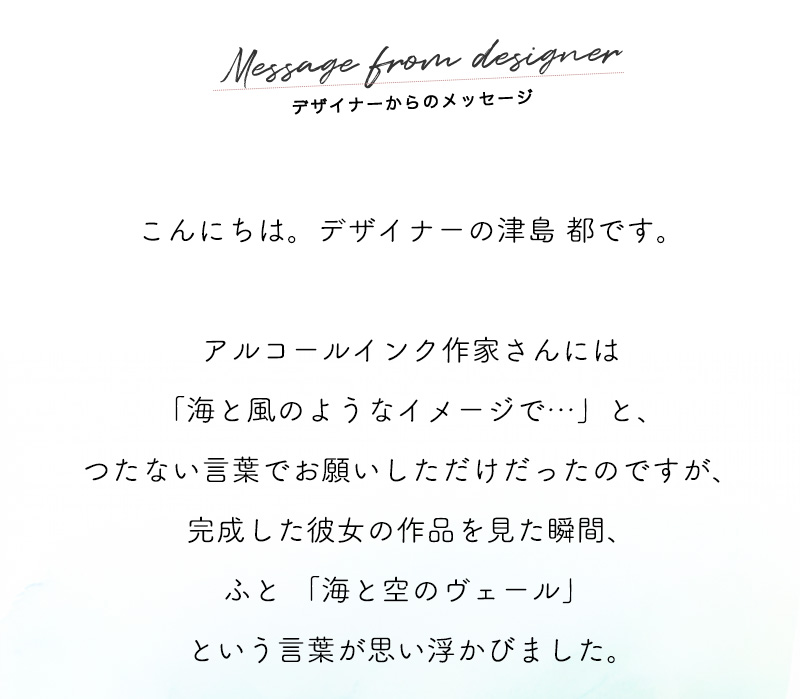 Message from designer
デザイナーからのメッセージ
こんにちは。デザイナーの津島 都です。
アルコールインク作家さんには
「海と風のようなイメージで…」と、
つたない言葉でお願いしただけだったのですが、
完成した彼女の作品を見た瞬間、
ふと 「海と空のヴェール」
という言葉が思い浮かびました。